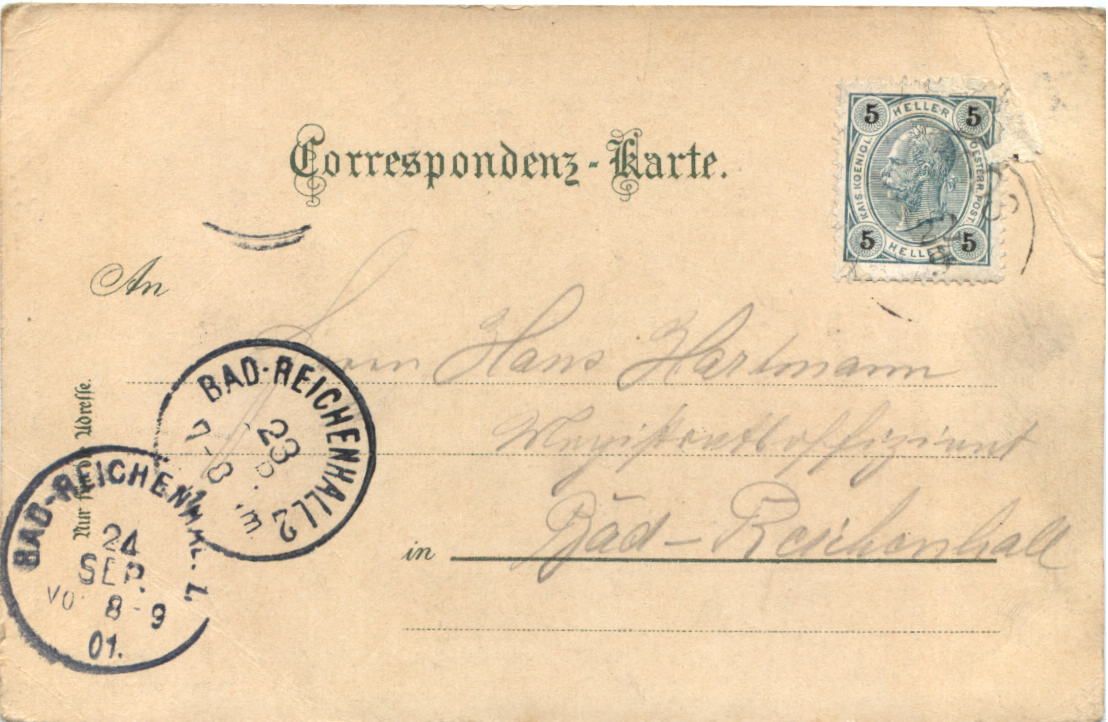 Correspondenz-Karte.
5 HELLER 5
KAIS. KOENIGL. OESTERR. POST.
5 HELLER 5
An
Herrn Hans Hartmann
Magistratsoffiziant
in Bad-Reichenhall
Nur für Adresse.
BAD-REICHENHALL 2
23
7-8
BAD-REICHENHALL. 1.
24
SEP.
VO 8-9
01.